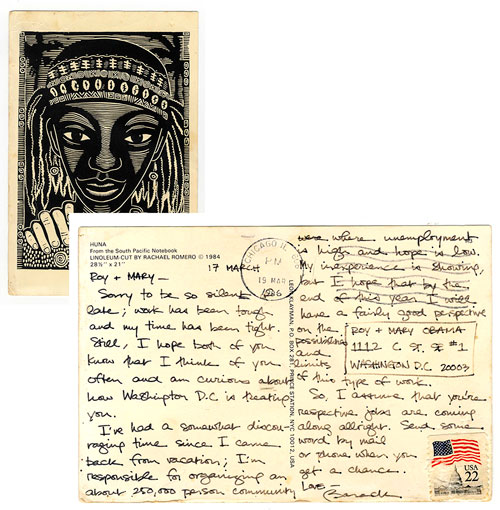 HUNA
From the South Pacific Notebook
LINOLEUM-CUT BY RACHAEL ROMERO © 1984
28½" x 21"
17 MARCH
ROY + MARY –
Sorry to be so silent
late; work has been tough
and my time has been tight.
Still, I hope both of you
know that I think of you
often and am curious about
how Washington D.C is treating
you.
I've had a somewhat discou-
raging time since I came
back from vacation; I'm
responsible for organizing an
about 250,000 person community
CHICAGO IL
PM
19 MAR
1986
LEDA KLAYMAN, P.O. BOX 281, PRINCE STATION, NYC 10012, USA
were where unemployment
is high and hope is low.
My inexperience is showing,
but I hope that by the
end of this year I will
have a fairly good perspective
on the
possibilities
and
limits
of this type of work.
ROY + MARY OBAMA
1112 C St. SE #1
WASHINGTON D.C. 20003
So, I assume that you're
respective jobs are coming
along allright. Send some
word by mail
or phone when you
get a chance.
Love –
Barack
USA
22